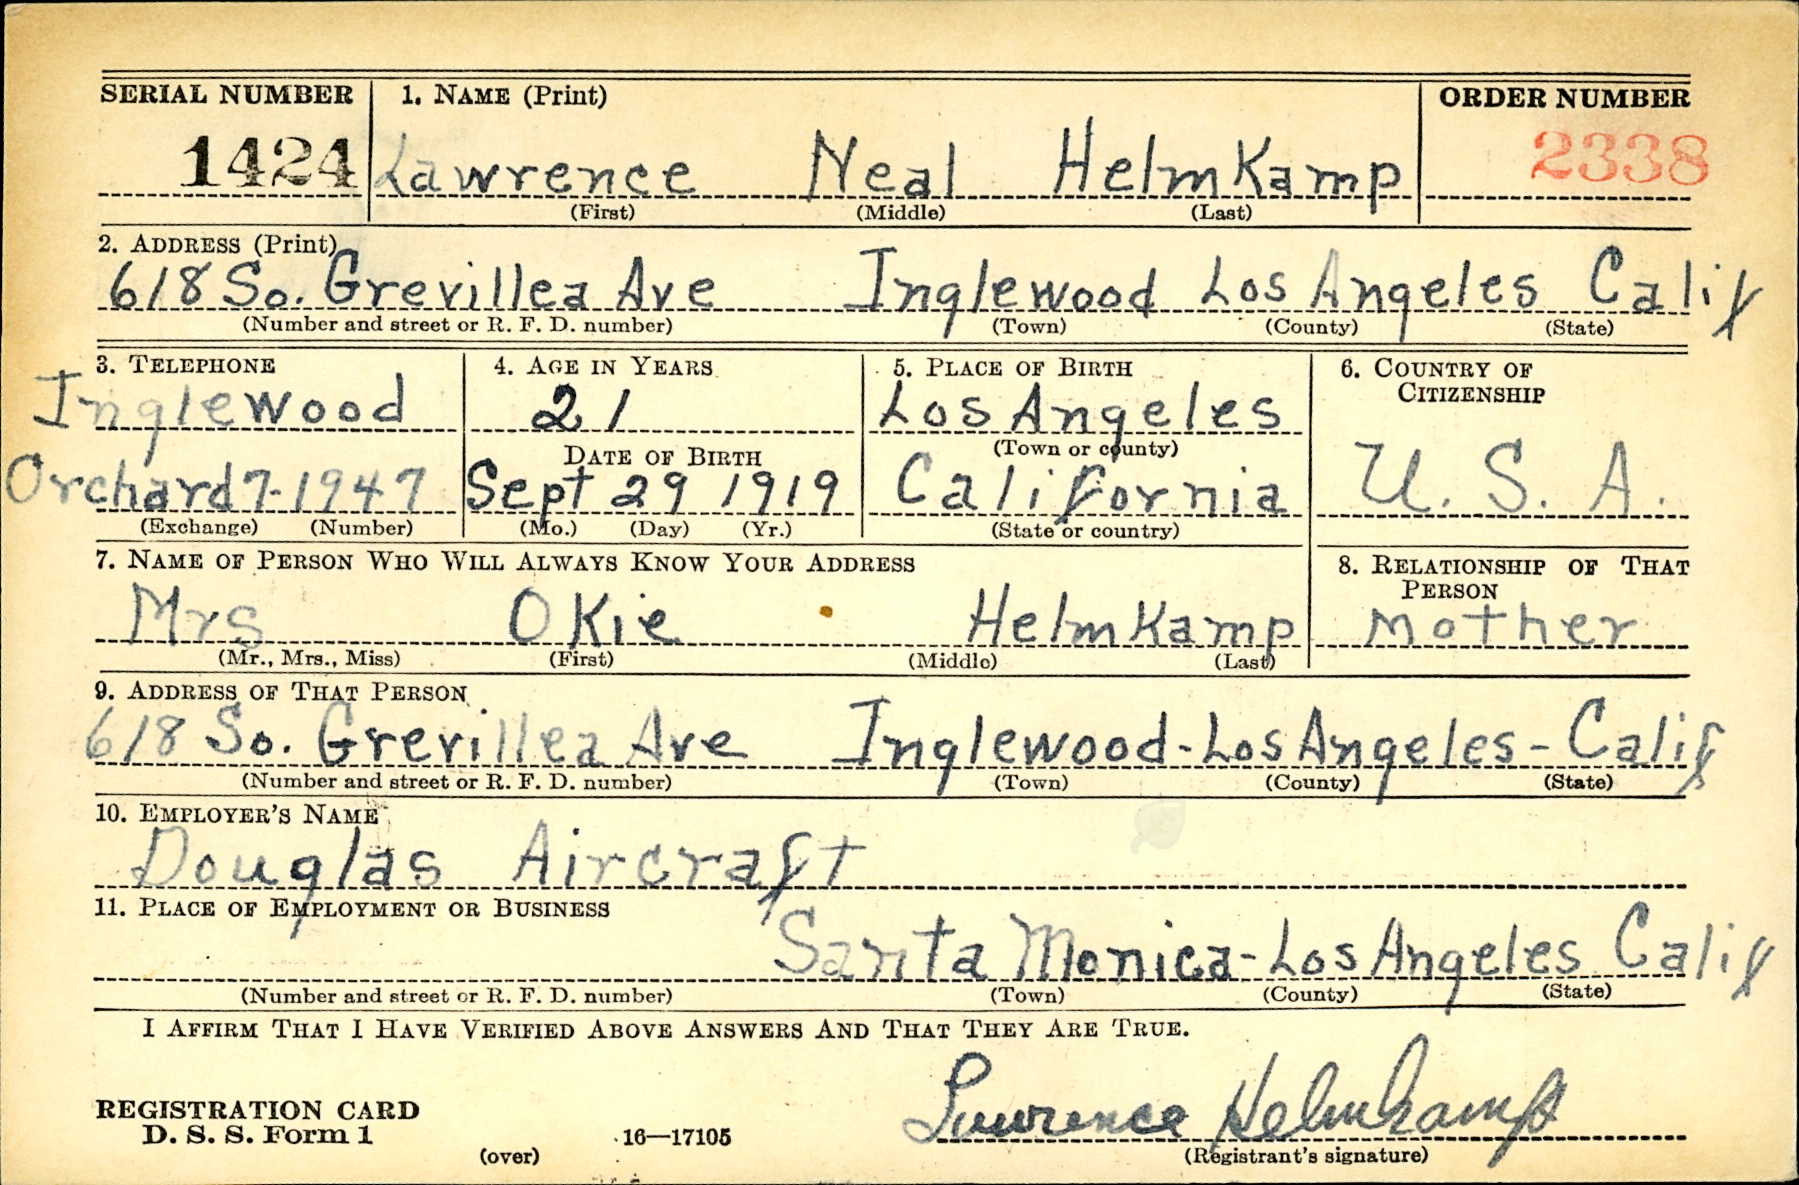 SERIAL NUMBER 1. NAME (Print) ORDER NUMBER
1424 Lawrence Neal HelmKamp 2338
(First) (Middle) (Last)
2. ADDRESS (Print)
618 So. Grevillea Ave Inglewood Los Angeles Calif
(Number and street or R. F. D. number) (Town) (County) (State)
3. TELEPHONE 4. AGE IN YEARS 5. PLACE OF BIRTH 6. COUNTRY OF
CITIZENSHIP
Inglewood 21 Los Angeles
DATE OF BIRTH (Town or county)
Orchard 7-1947 Sept 29 1919 California U. S. A.
(Exchange) (Number) (Mo.) (Day) (Yr.) (State or country)
7. NAME OF PERSON WHO WILL ALWAYS KNOW YOUR ADDRESS 8. RELATIONSHIP OF THAT
PERSON
Mrs OKie HelmKamp Mother
(Mr., Mrs., Miss) (First) (Middle) (Last)
9. ADDRESS OF THAT PERSON
618 So. Grevillea Ave Inglewood-Los Angeles-Calif
(Number and street or R. F. D. number) (Town) (County) (State)
10. EMPLOYER'S NAME
Douglas Aircraft
11. PLACE OF EMPLOYMENT OR BUSINESS
Santa Monica-Los Angeles Calif
(Number and street or R. F. D. number) (Town) (County) (State)
I AFFIRM THAT I HAVE VERIFIED ABOVE ANSWERS AND THAT THEY ARE TRUE.
Lawrence Helmkamp
REGISTRATION CARD
D. S. S. Form 1 16—17105
(over) (Registrant's signature)